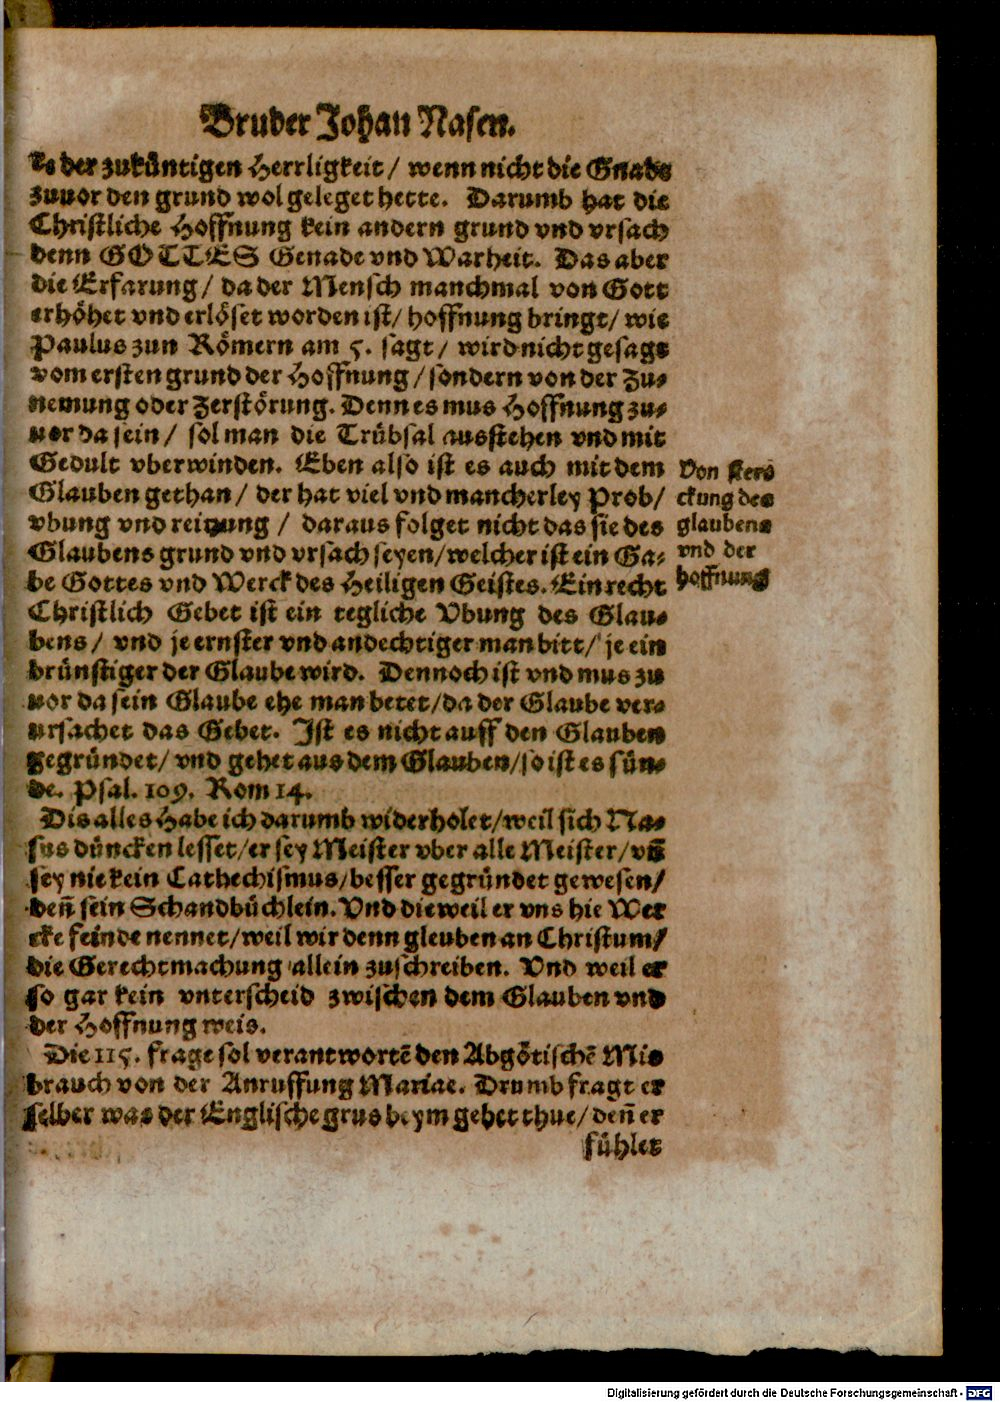 Bruder Johan Nasen.
te der zukůntigen Herrligkeit / wenn nicht die Gnade
zuuor den grund wol geleget hette. Darumb hat die
Christliche Hoffnung kein andern grund vnd vrsach
denn GOTTES Genade vnd Warheit. Das aber
die Erfarung / da der Mensch manchmal von Gott
erhöhet vnd erlöset worden ist / hoffnung bringt / wie
Paulus zun Römern am 5. sagt / wird nicht gesagt
vom ersten grund der Hoffnung / sondern von der Zu-
nemung oder Zerstörung. Denn es mus Hoffnung zu-
uor da sein / sol man die Trübsal ausstehen vnd mit
Gedult vberwinden. Eben also ist es auch mit dem
Glauben gethan / der hat viel vnd mancherley Prob /
vbung vnd reitzung / daraus folget nicht das sie des
Glaubens grund vnd vrsach seyen / welcher ist ein Ga-
be Gottes vnd Werck des Heiligen Geistes. Ein recht
Christlich Gebet ist ein tegliche Vbung des Glau-
bens / vnd je ernster vnd andechtiger man bitt / je ein
brünstiger der Glaube wird. Dennoch ist vnd mus zu
uor da sein Glaube ehe man betet / da der Glaube ver-
ursachet das Gebet. Ist es nicht auff den Glauben
gegründet / vnd gehet aus dem Glauben / so ist es sün-
de. Psal. 109. Rom 14.
Von sterckung des
glaubens
vnd der
hoffnung
Dis alles habe ich darumb widerholet / weil sich Na-
sus düncken lesset / er sey Meister vber alle Meister / vn̄
sey nie kein Cathechismus / besser gegründet gewesen /
den̄ sein Schandbüchlein. Vnd dieweil er vns hie Wer
cke feinde nennet / weil wir denn gleuben an Christum /
die Gerechtmachung allein zuschreiben. Vnd weil er
so gar kein vnterscheid zwischen dem Glauben vnd
der Hoffnung weis.
Die 115. frage sol verantwortē den Abgötischē Mis
brauch von der Anruffung Mariae. Drumb fragt er
selber was der Englische grus beym gebet thue / den̄ er
fühlet
Digitalisierung gefördert durch die Deutsche Forschungsgemeinschaft - DFG